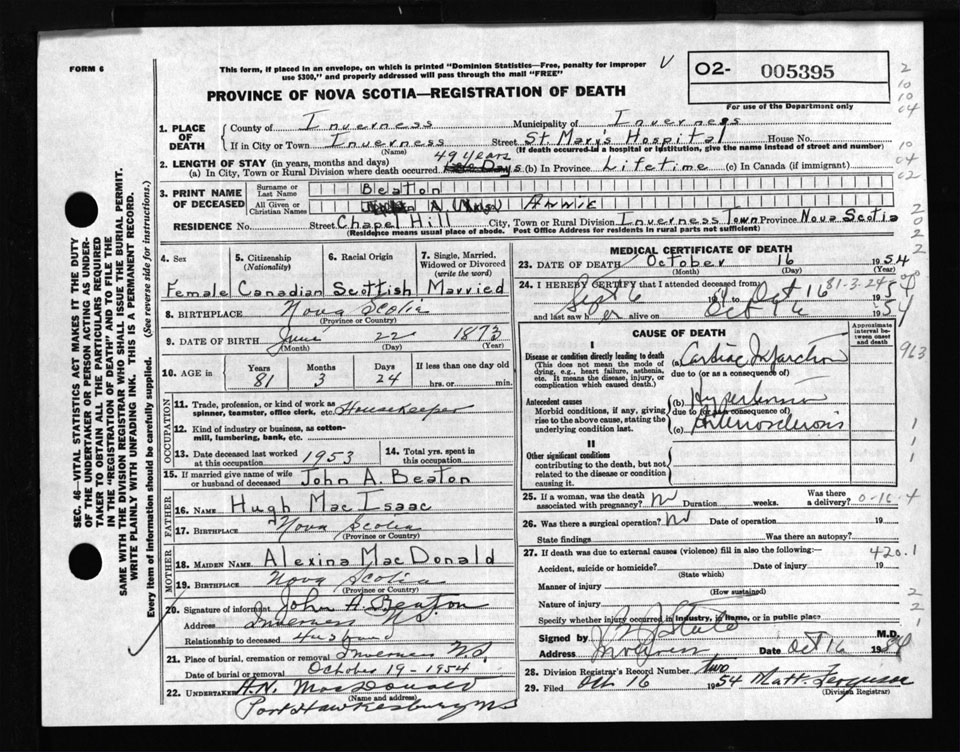 FORM 6
This form, if placed in an envelope, on which is printed "Dominion Statistics—Free, penalty for improper
use $300," and properly addressed will pass through the mail "FREE"
PROVINCE OF NOVA SCOTIA—REGISTRATION OF DEATH
O2- 005395
For use of the Department only
1. PLACE OF DEATH
County of Inverness Municipality of Inverness
If in City or Town Inverness Street St. Mary's Hospital House No.
(Name) (If death occurred in a hospital or institution, give the name instead of street and number)
2. LENGTH OF STAY (in years, months and days) 49 years
(a) In City, Town or Rural Division where death occurred Days (b) In Province Lifetime (c) In Canada (if immigrant)
3. PRINT NAME OF DECEASED
Surname or Last Name Beaton
All Given or Christian Names A. (Mrs.) Annie
RESIDENCE No. Street Chapel Hill City, Town or Rural Division Inverness Town Province Nova Scotia
(Residence means usual place of abode. Post Office Address for residents in rural parts not sufficient)
SEC. 46—VITAL STATISTICS ACT MAKES IT THE DUTY
OF THE UNDERTAKER OR PERSON ACTING AS UNDER-
TAKER TO OBTAIN ALL THE PARTICULARS REQUIRED
IN THE "REGISTRATION OF DEATH" AND TO FILE THE
SAME WITH THE DIVISION REGISTRAR WHO SHALL ISSUE THE BURIAL PERMIT.
WRITE PLAINLY WITH UNFADING INK. THIS IS A PERMANENT RECORD.
Every item of information should be carefully supplied. (See reverse side for instructions.)
4. Sex
Female
5. Citizenship (Nationality)
Canadian
6. Racial Origin
Scottish
7. Single, Married, Widowed or Divorced (write the word)
Married
8. BIRTHPLACE Nova Scotia
(Province or Country)
9. DATE OF BIRTH June 22 1873
(Month) (Day) (Year)
10. AGE in
Years Months Days If less than one day old
81 3 24 hrs. or min.
OCCUPATION
11. Trade, profession, or kind of work as
spinner, teamster, office clerk, etc. Housekeeper
12. Kind of industry or business, as cotton-
mill, lumbering, bank, etc.
13. Date deceased last worked
at this occupation 1953
14. Total yrs. spent in
this occupation
15. If married give name of wife
or husband of deceased John A. Beaton
FATHER
16. NAME Hugh MacIsaac
17. BIRTHPLACE Nova Scotia
(Province or Country)
MOTHER
18. MAIDEN NAME Alexina MacDonald
19. BIRTHPLACE Nova Scotia
(Province or Country)
20. Signature of informant John A. Beaton
Address Inverness N.S.
Relationship to deceased Husband
21. Place of burial, cremation or removal Inverness N.S.
Date of burial or removal October 19-1954
22. UNDERTAKER H.N. MacDonald
(Name and address)
Port Hawkesbury N.S
MEDICAL CERTIFICATE OF DEATH
23. DATE OF DEATH October 16 1954
(Month) (Day) (Year)
24. I HEREBY CERTIFY that I attended deceased from
Sept 6 Oct 16 81-3-24
and last saw her alive on Oct 16 54
CAUSE OF DEATH
Approximate interval between onset and death
I
Disease or condition directly leading to death
(This does not mean the mode of
dying, e.g., heart failure, asthenia,
etc. It means the disease, injury, or
complication which caused death.)
(a) Cardiac Infarction
due to (or as a consequence of)
Antecedent causes
Morbid conditions, if any, giving
rise to the above cause, stating the
underlying condition last.
(b) Hypertension
due to (or as a consequence of)
(c) Arteriosclerosis
II
Other significant conditions
contributing to the death, but not
related to the disease or condition
causing it.
963
25. If a woman, was the death
associated with pregnancy? No Duration weeks. Was there a delivery? 0-16-4
26. Was there a surgical operation? No Date of operation 19
State findings Was there an autopsy?
27. If death was due to external causes (violence) fill in also the following:— 420.1
Accident, suicide or homicide? Date of injury 19
(State which)
Manner of injury
(How sustained)
Nature of injury
Specify whether injury occurred in industry, in home, or in public place
Signed by M.D.
Address Inverness Date Oct 16 1954
28. Division Registrar's Record Number two
29. Filed Oct 16 1954 Matt. Ferguson
(Division Registrar)